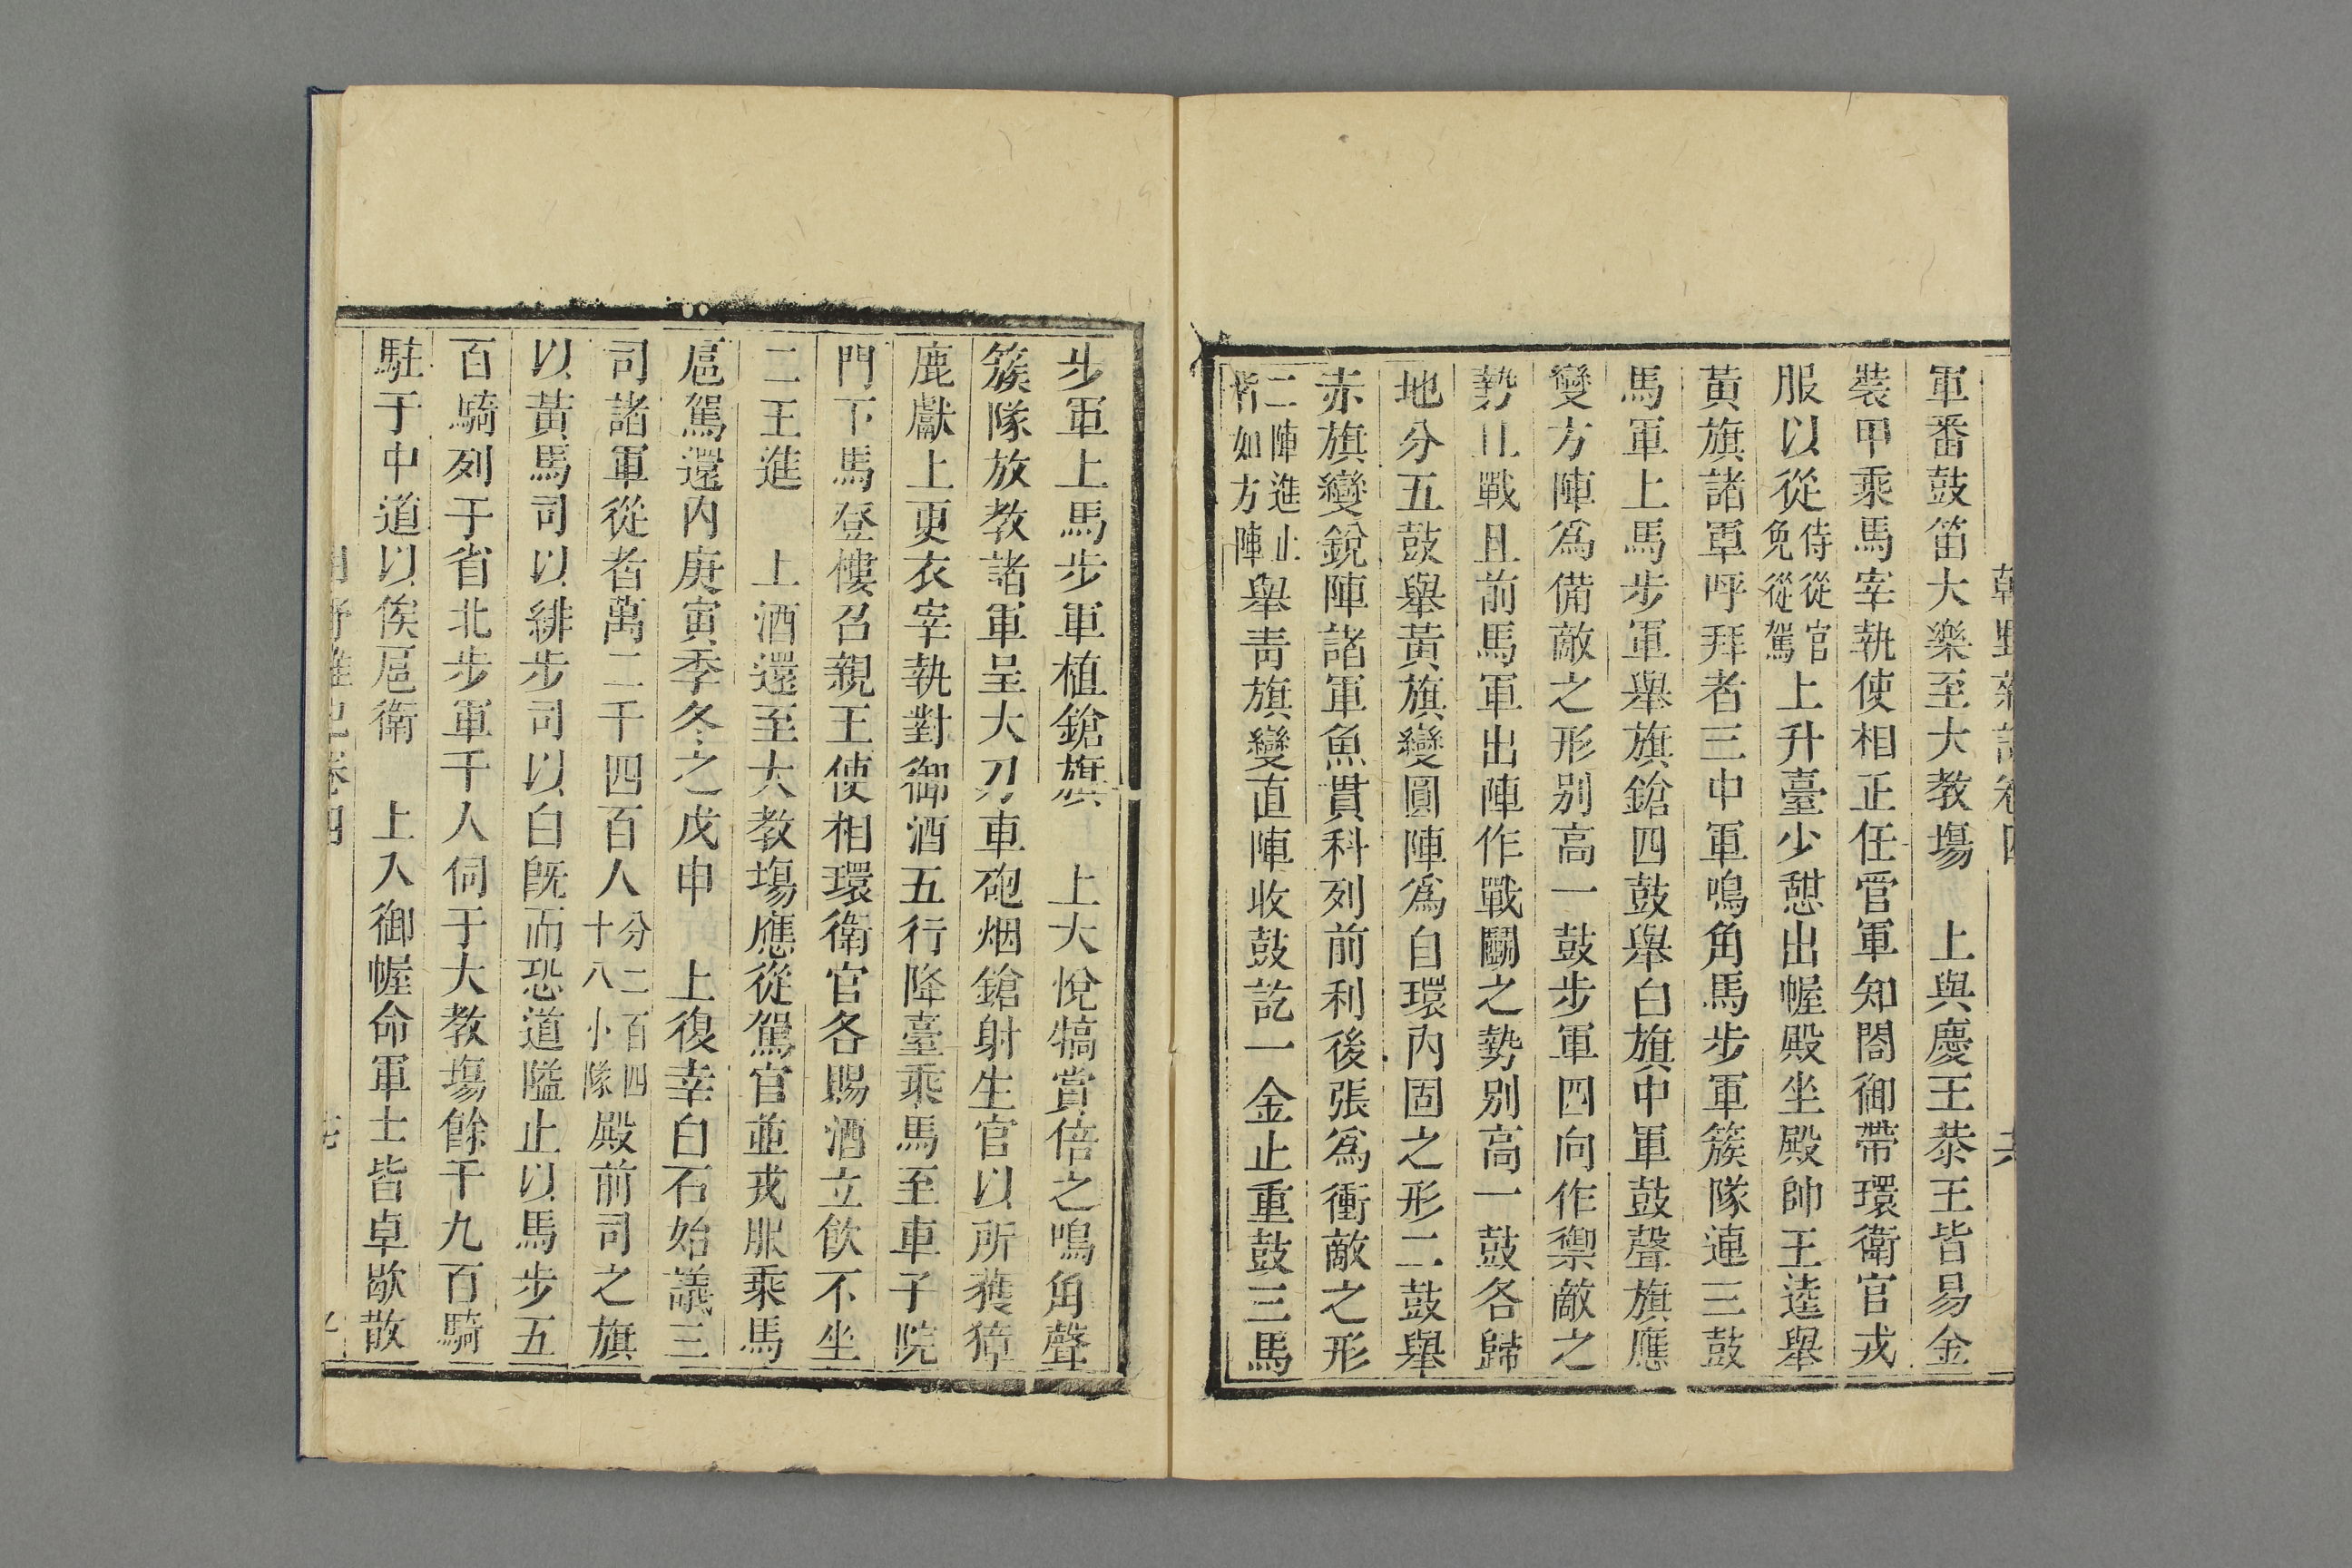 朝野雜記卷四
軍番鼓笛大樂至大教塲　上與慶王恭王皆易金
裝甲乘馬宰執使相正任管軍知閤御帶環衛官戎
服以從侍從官免從駕上升臺少憩出幄殿坐殿帥王逵舉
黃旗諸軍呼拜者三中軍鳴角馬步軍簇隊連三鼓
馬軍上馬步軍舉旗鎗四鼓舉白旗中軍鼓聲旗應
變方陣爲備敵之形別高一鼓步軍四向作禦敵之
勢且戰且前馬軍出陣作戰鬭之勢別高一鼓各歸
地分五鼓舉黃旗變圓陣爲自環內固之形二鼓舉
赤旗變銳陣諸軍魚貫科列前利後張爲衝敵之形
二陣進止皆如方陣舉靑旗變直陣收鼓訖一金止重鼓三馬
步軍上馬步軍植鎗旗　上大悅犒賞倍之鳴角聲
簇隊放教諸軍呈大刀車砲烟鎗射生官以所獲獐
鹿獻上更衣宰執對御酒五行降臺乘馬至車子院
門下馬登樓召親王使相環衛官各賜酒立飮不坐
二王進　上酒還至大教塲應從駕官並戎服乘馬
扈駕還內庚寅季冬之戊申　上復幸白石始議三
司諸軍從者萬二千四百人分二百四十八小隊殿前司之旗
以黃馬司以緋步司以白旣而恐道隘止以馬步五
百騎列于省北步軍千人伺于大教塲餘千九百騎
駐于中道以俟扈衛　上入御幄命軍士皆卓歇散